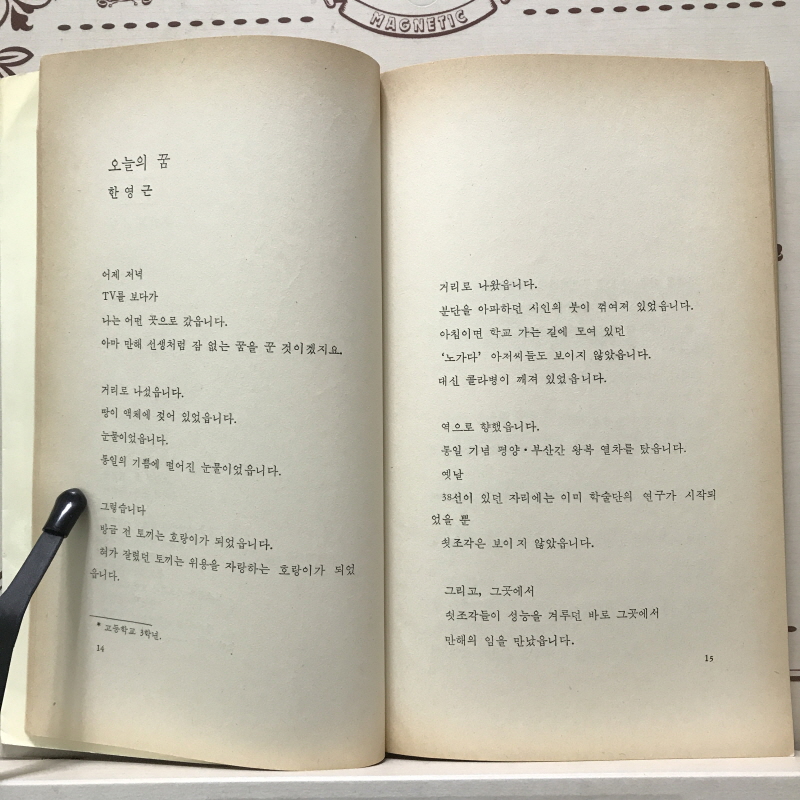 MAGNETIC
오늘의 꿈
한 영 근
어제 저녁
TV를 보다가
나는 어떤 곳으로 갔읍니다.
아마 만해 선생처럼 잠 없는 꿈을 꾼 것이겠지요.
거리로 나섰읍니다.
땅이 액체에 젖어 있었읍니다.
눈물이었읍니다.
통일의 기쁨에 떨어진 눈물이었읍니다.
그렇습니다
방금 전 토끼는 호랑이가 되었읍니다.
허가 잘렸던 토끼는 위용을 자랑하는 호랑이가 되었
읍니다.
* 고등학교 3학년.
14
거리로 나왔읍니다.
분단을 아파하던 시인의 붓이 꺾여져 있었읍니다.
아침이면 학교 가는 길에 모여 있던
‘노가다’ 아저씨들도 보이지 않았읍니다.
대신 콜라병이 깨져 있었읍니다.
역으로 향했읍니다.
통일 기념 평양·부산간 왕복 열차를 탔읍니다.
옛날
38선이 있던 자리에는 이미 학술단의 연구가 시작되
었을 뿐
쇳조각은 보이지 않았읍니다.
그리고, 그곳에서
쇳조각들이 성능을 겨루던 바로 그곳에서
만해의 임을 만났읍니다.
15